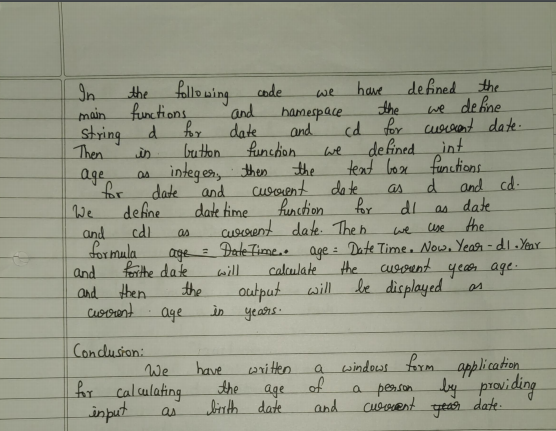 In the following code we have defined the
main functions and namespace the we define
String d for date and cd for current date.
Then in button function we defined int
age as integer, then the text box functions
for date and current date as d and cd.
We define datetime function for d1 as date
and cd1 as current date. Then we use the
formula age = DateTime.. age = DateTime.Now.Year - d1.Year
and forthe date will calculate the current year age.
and then the output will be displayed as
current age in years.
Conclusion:
We have written a windows form application
for calculating the age of a person by providing
input as birth date and current year date.